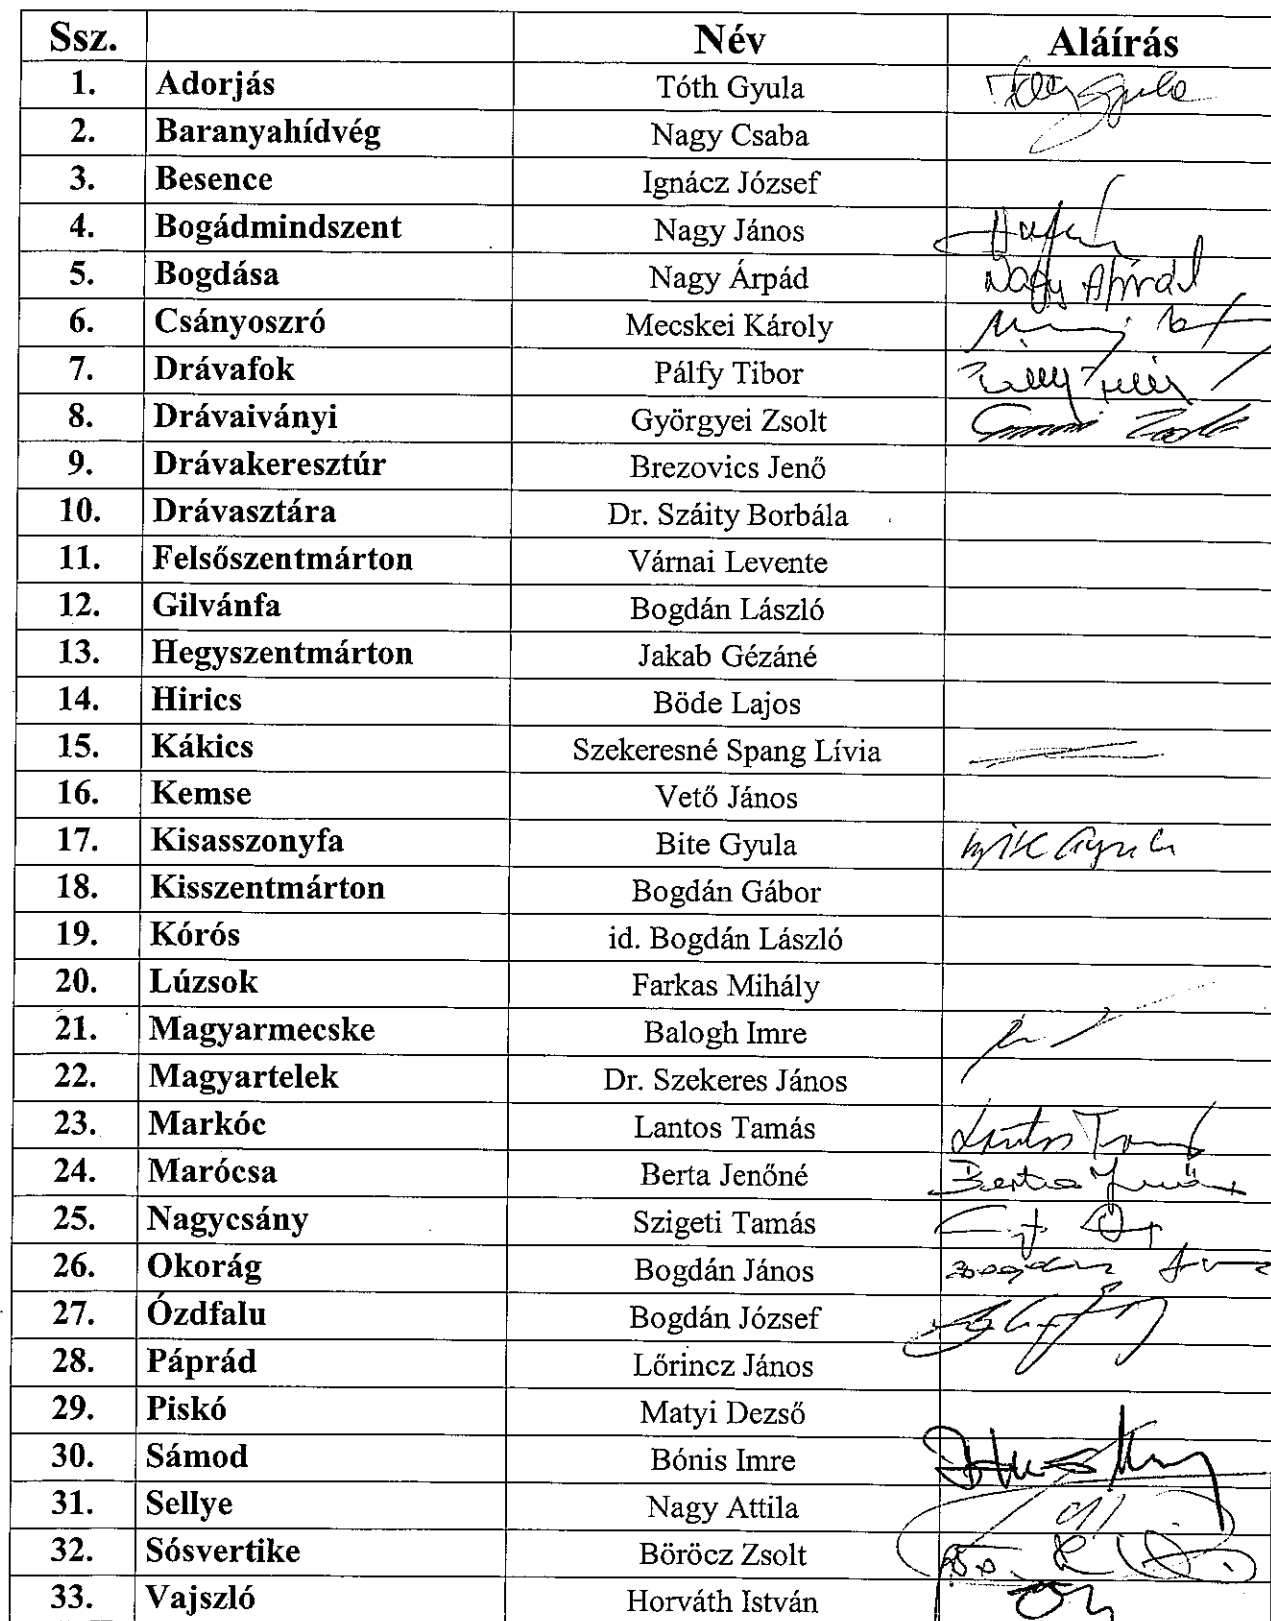 Ssz. Név Aláírás
1. Adorjás Tóth Gyula Tóth Gyula
2. Baranyahídvég Nagy Csaba
3. Besence Ignácz József
4. Bogádmindszent Nagy János
5. Bogdása Nagy Árpád Nagy Árpád
6. Csányoszró Mecskei Károly
7. Drávafok Pálfy Tibor
8. Drávaiványi Györgyei Zsolt
9. Drávakeresztúr Brezovics Jenő
10. Drávasztára Dr. Száity Borbála
11. Felsőszentmárton Várnai Levente
12. Gilvánfa Bogdán László
13. Hegyszentmárton Jakab Gézáné
14. Hirics Böde Lajos
15. Kákics Szekeresné Spang Lívia
16. Kemse Vető János
17. Kisasszonyfa Bite Gyula
18. Kisszentmárton Bogdán Gábor
19. Kórós id. Bogdán László
20. Lúzsok Farkas Mihály
21. Magyarmecske Balogh Imre
22. Magyartelek Dr. Szekeres János
23. Markóc Lantos Tamás Lantos Tamás
24. Marócsa Berta Jenőné Berta Jenőné
25. Nagycsány Szigeti Tamás
26. Okorág Bogdán János
27. Ózdfalu Bogdán József
28. Páprád Lőrincz János
29. Piskó Matyi Dezső
30. Sámod Bónis Imre
31. Sellye Nagy Attila
32. Sósvertike Böröcz Zsolt
33. Vajszló Horváth István